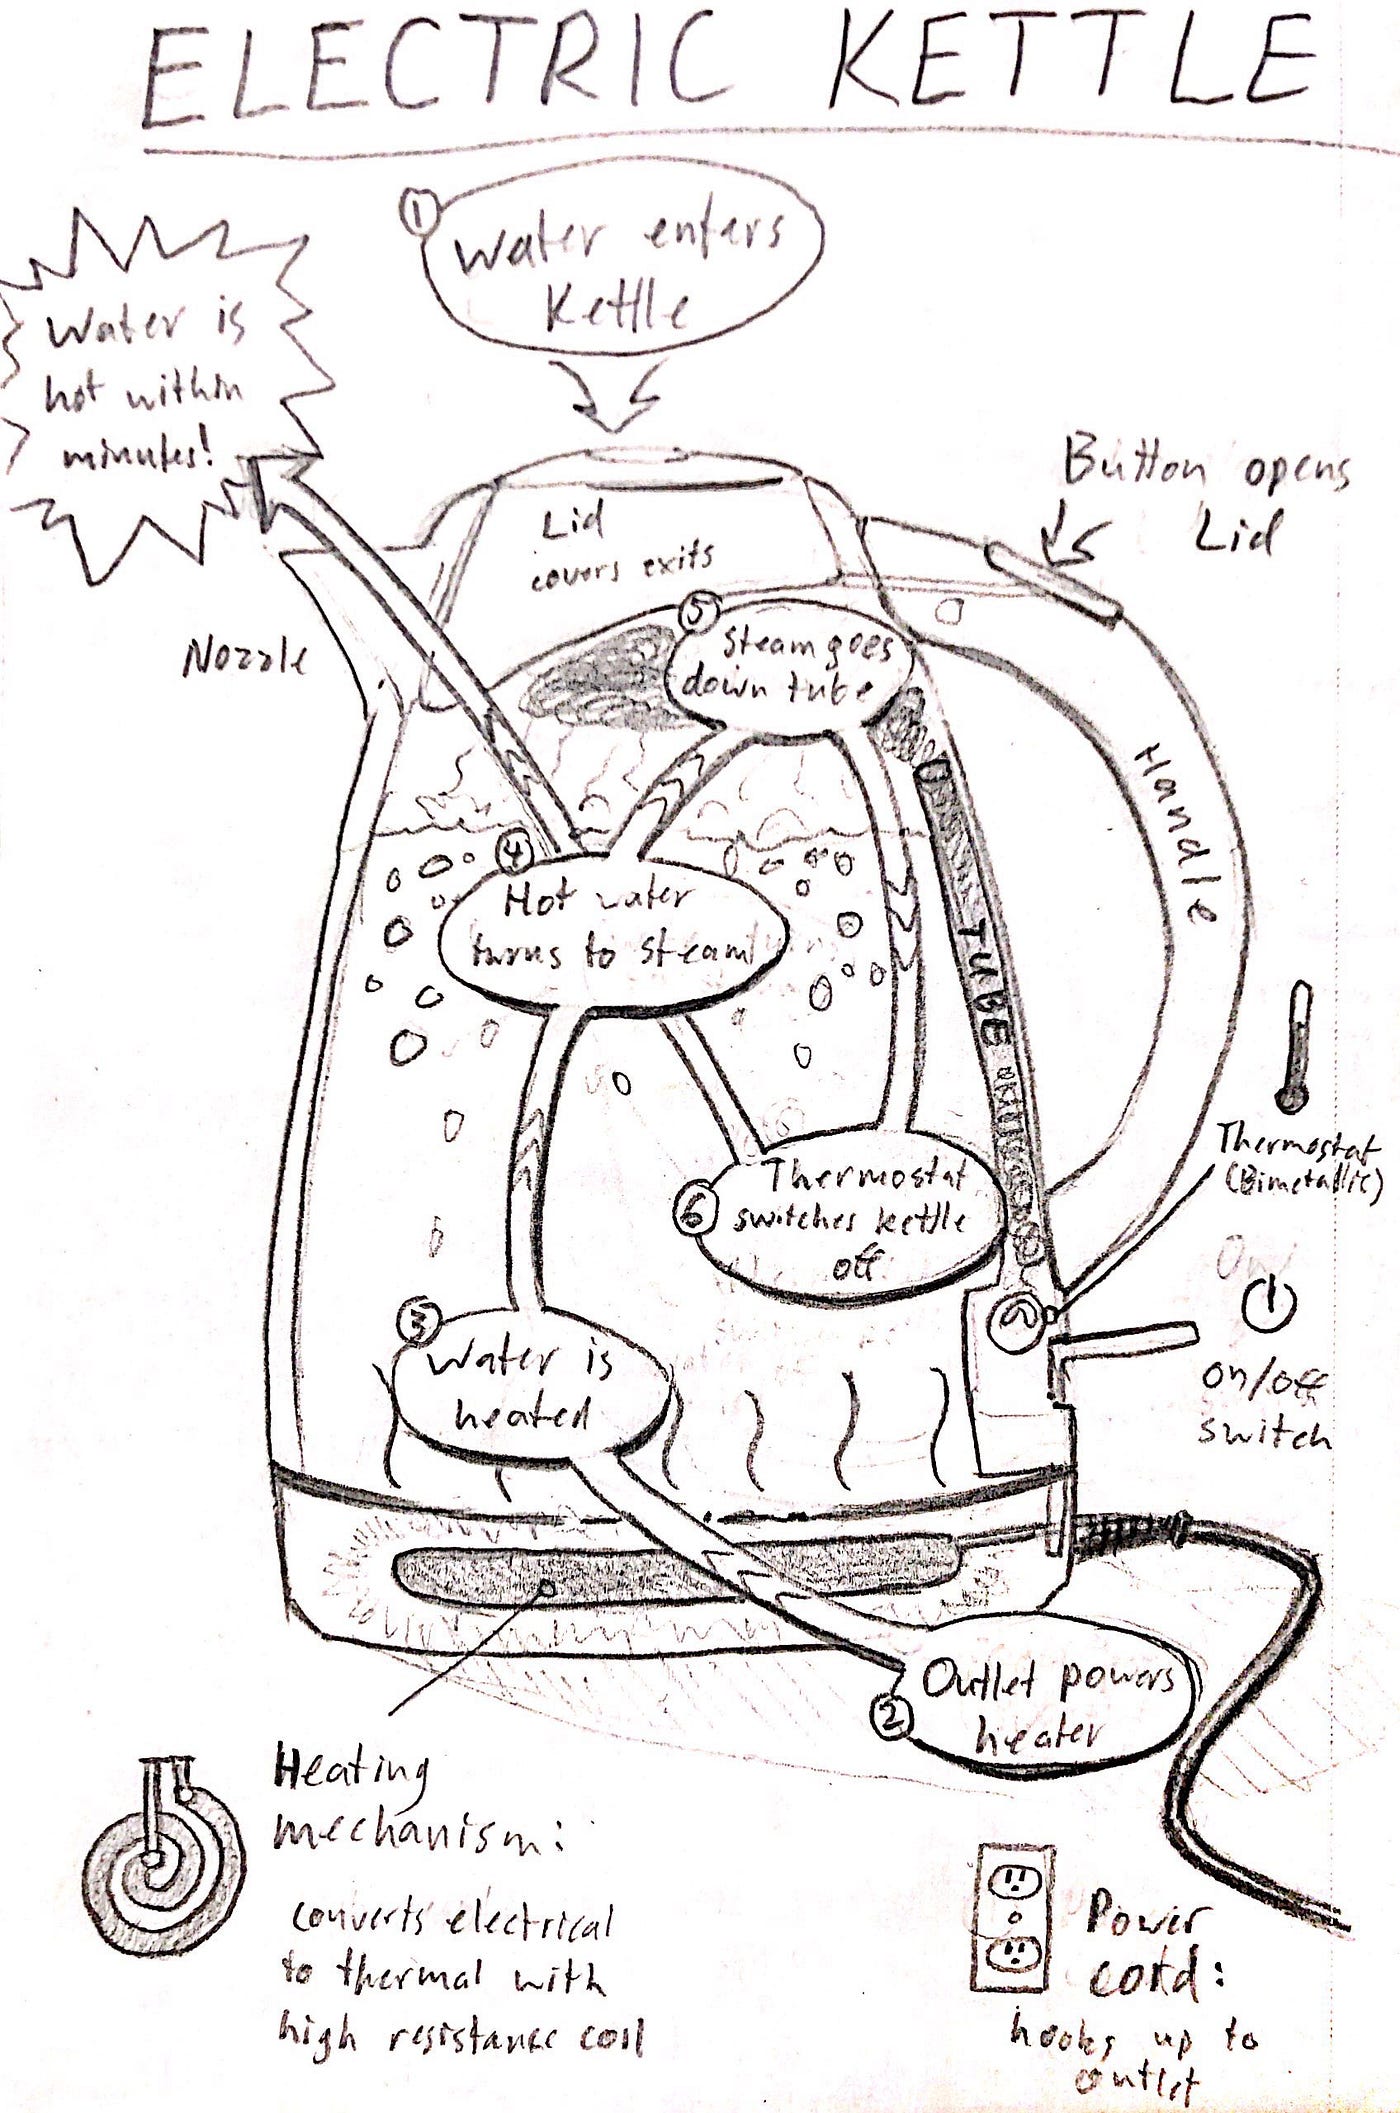 ELECTRIC KETTLE
① Water enters
Kettle
Water is
hot within
minutes!
Button opens
Lid
Lid
covers exits
Nozzle
⑤ Steam goes
down tube
Handle
④ Hot water
turns to steam
TUBE
Thermostat
(Bimetallic)
⑥ Thermostat
switches kettle
off
③ Water is
heated
on/off
switch
② Outlet powers
heater
Heating
mechanism:
converts electrical
to thermal with
high resistance coil
Power
cord:
hooks up to
outlet